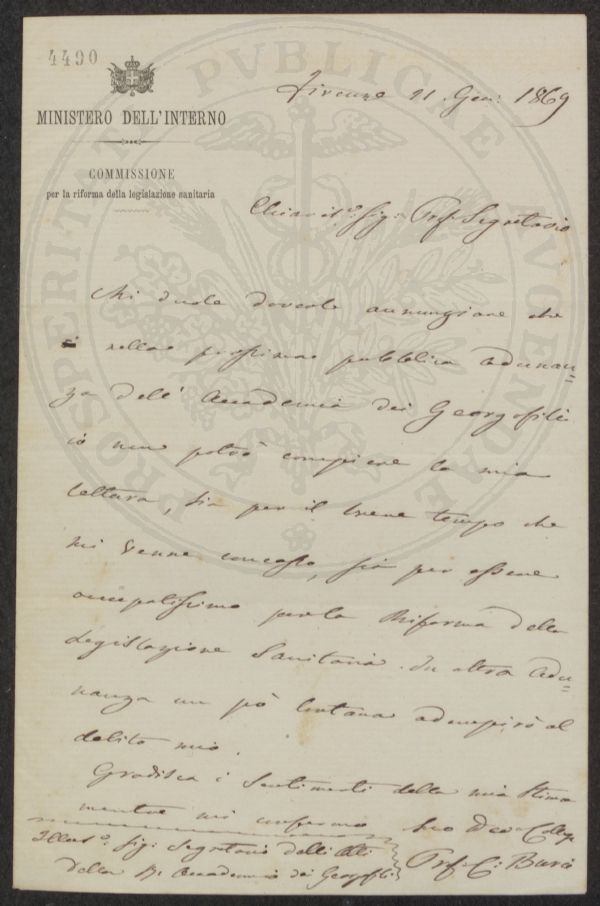 4490
MINISTERO DELL'INTERNO
COMMISSIONE
per la riforma della legislazione sanitaria
Firenze 21. Gen: 1869
Chiariss.º Sig: Prof. Segretario
Mi duole doverle annunziare che
nella prossima pubblica adunan=
za dell' Accademia dei Georgofili
io non potrò compiere la mia
lettura, sia per il breve tempo che
mi venne concesso, sia per essere
occupatissimo per la Riforma della
Legislazione Sanitaria. In altra adu=
nanza un pò lontana adempirò al
debito mio.
Gradisca i sentimenti della mia stima
mentre mi confermo Suo Dev. Collega
Illus.º Sig: Segretario delli Atti
della R. Accademia dei Georgofili
Prof. C: Burci
PROSPERITATI PVBLICAE AVGENDAE